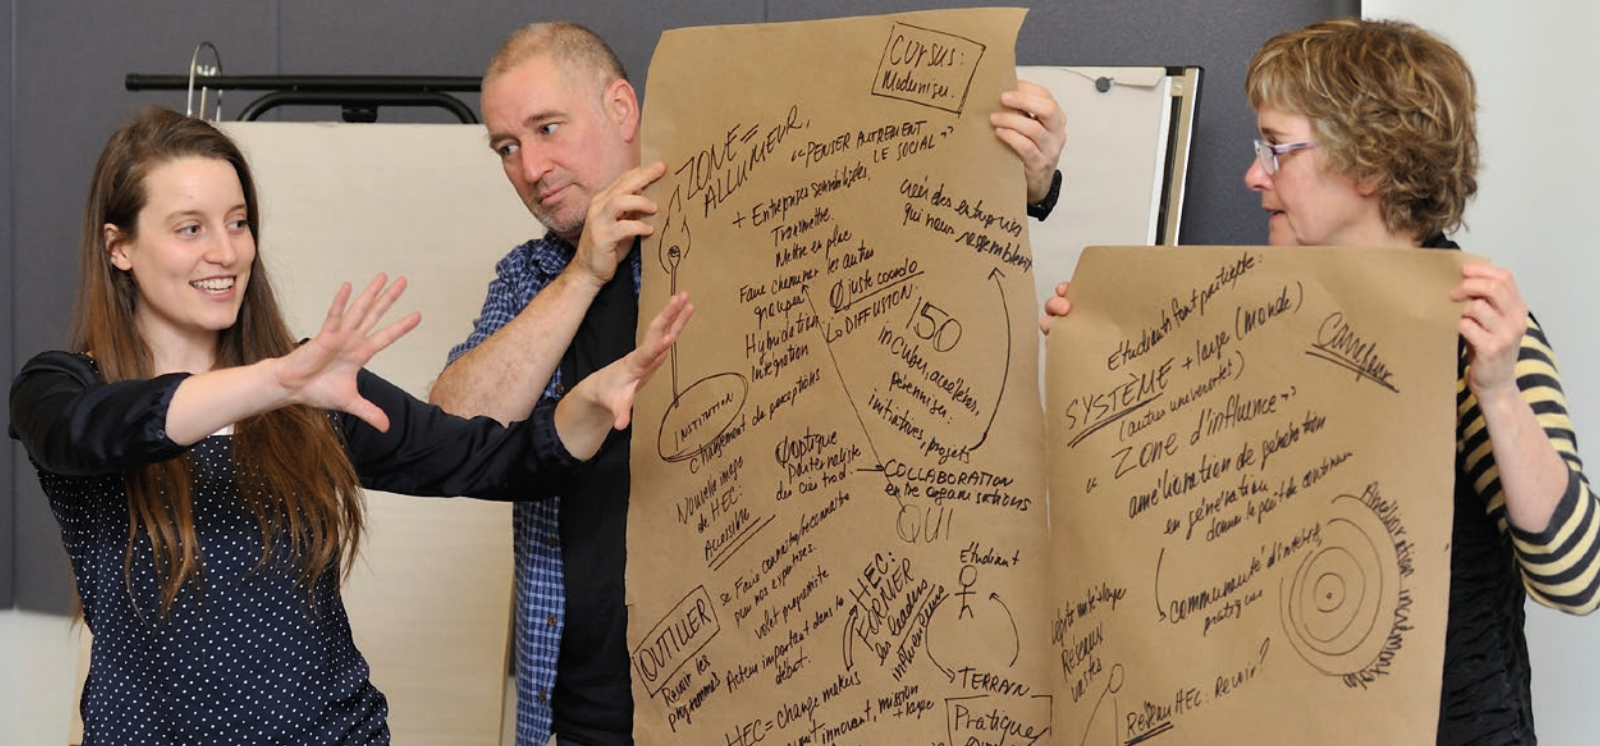 Cursus:
Moderniser.
ZONE=
ALLUMEUR,
"PENSER AUTREMENT
LE SOCIAL"
+ Entreprises sensibilisées.
Transmettre.
Mettre en place
Faire cheminer les autres
groupes
Hybridation
Intégration
Ø juste coordo
↳ DIFFUSION.
créer des entreprises
qui nous ressemblent
150
incuber, accélérer,
pérenniser.
initiatives, projets
COLLABORATION
entre organisations
QUI
INSTITUTION
changement de perceptions
Ø optique
paternaliste
des cies trad.
Nouvelle image
de HEC:
Accessible
se faire connaître/reconnaître
pour nos expertises.
volet proximité
Acteur important dans le
débat.
OUTILLER
Revoir les
programmes
HEC:
FORMER
les leaders
influenceurs
Étudiant
TERRAIN
Pratique
HEC = change makers
innovant, mission
+ large
Étudiants font partie de:
SYSTÈME + large (monde)
(autres universités)
Carrefour
"Zone d'influence"
amélioration de génération
en génération
donner le goût de continuer
communauté d'intérêt,
pratiques
Réseaux
vastes
Réseau HEC: Revoir?